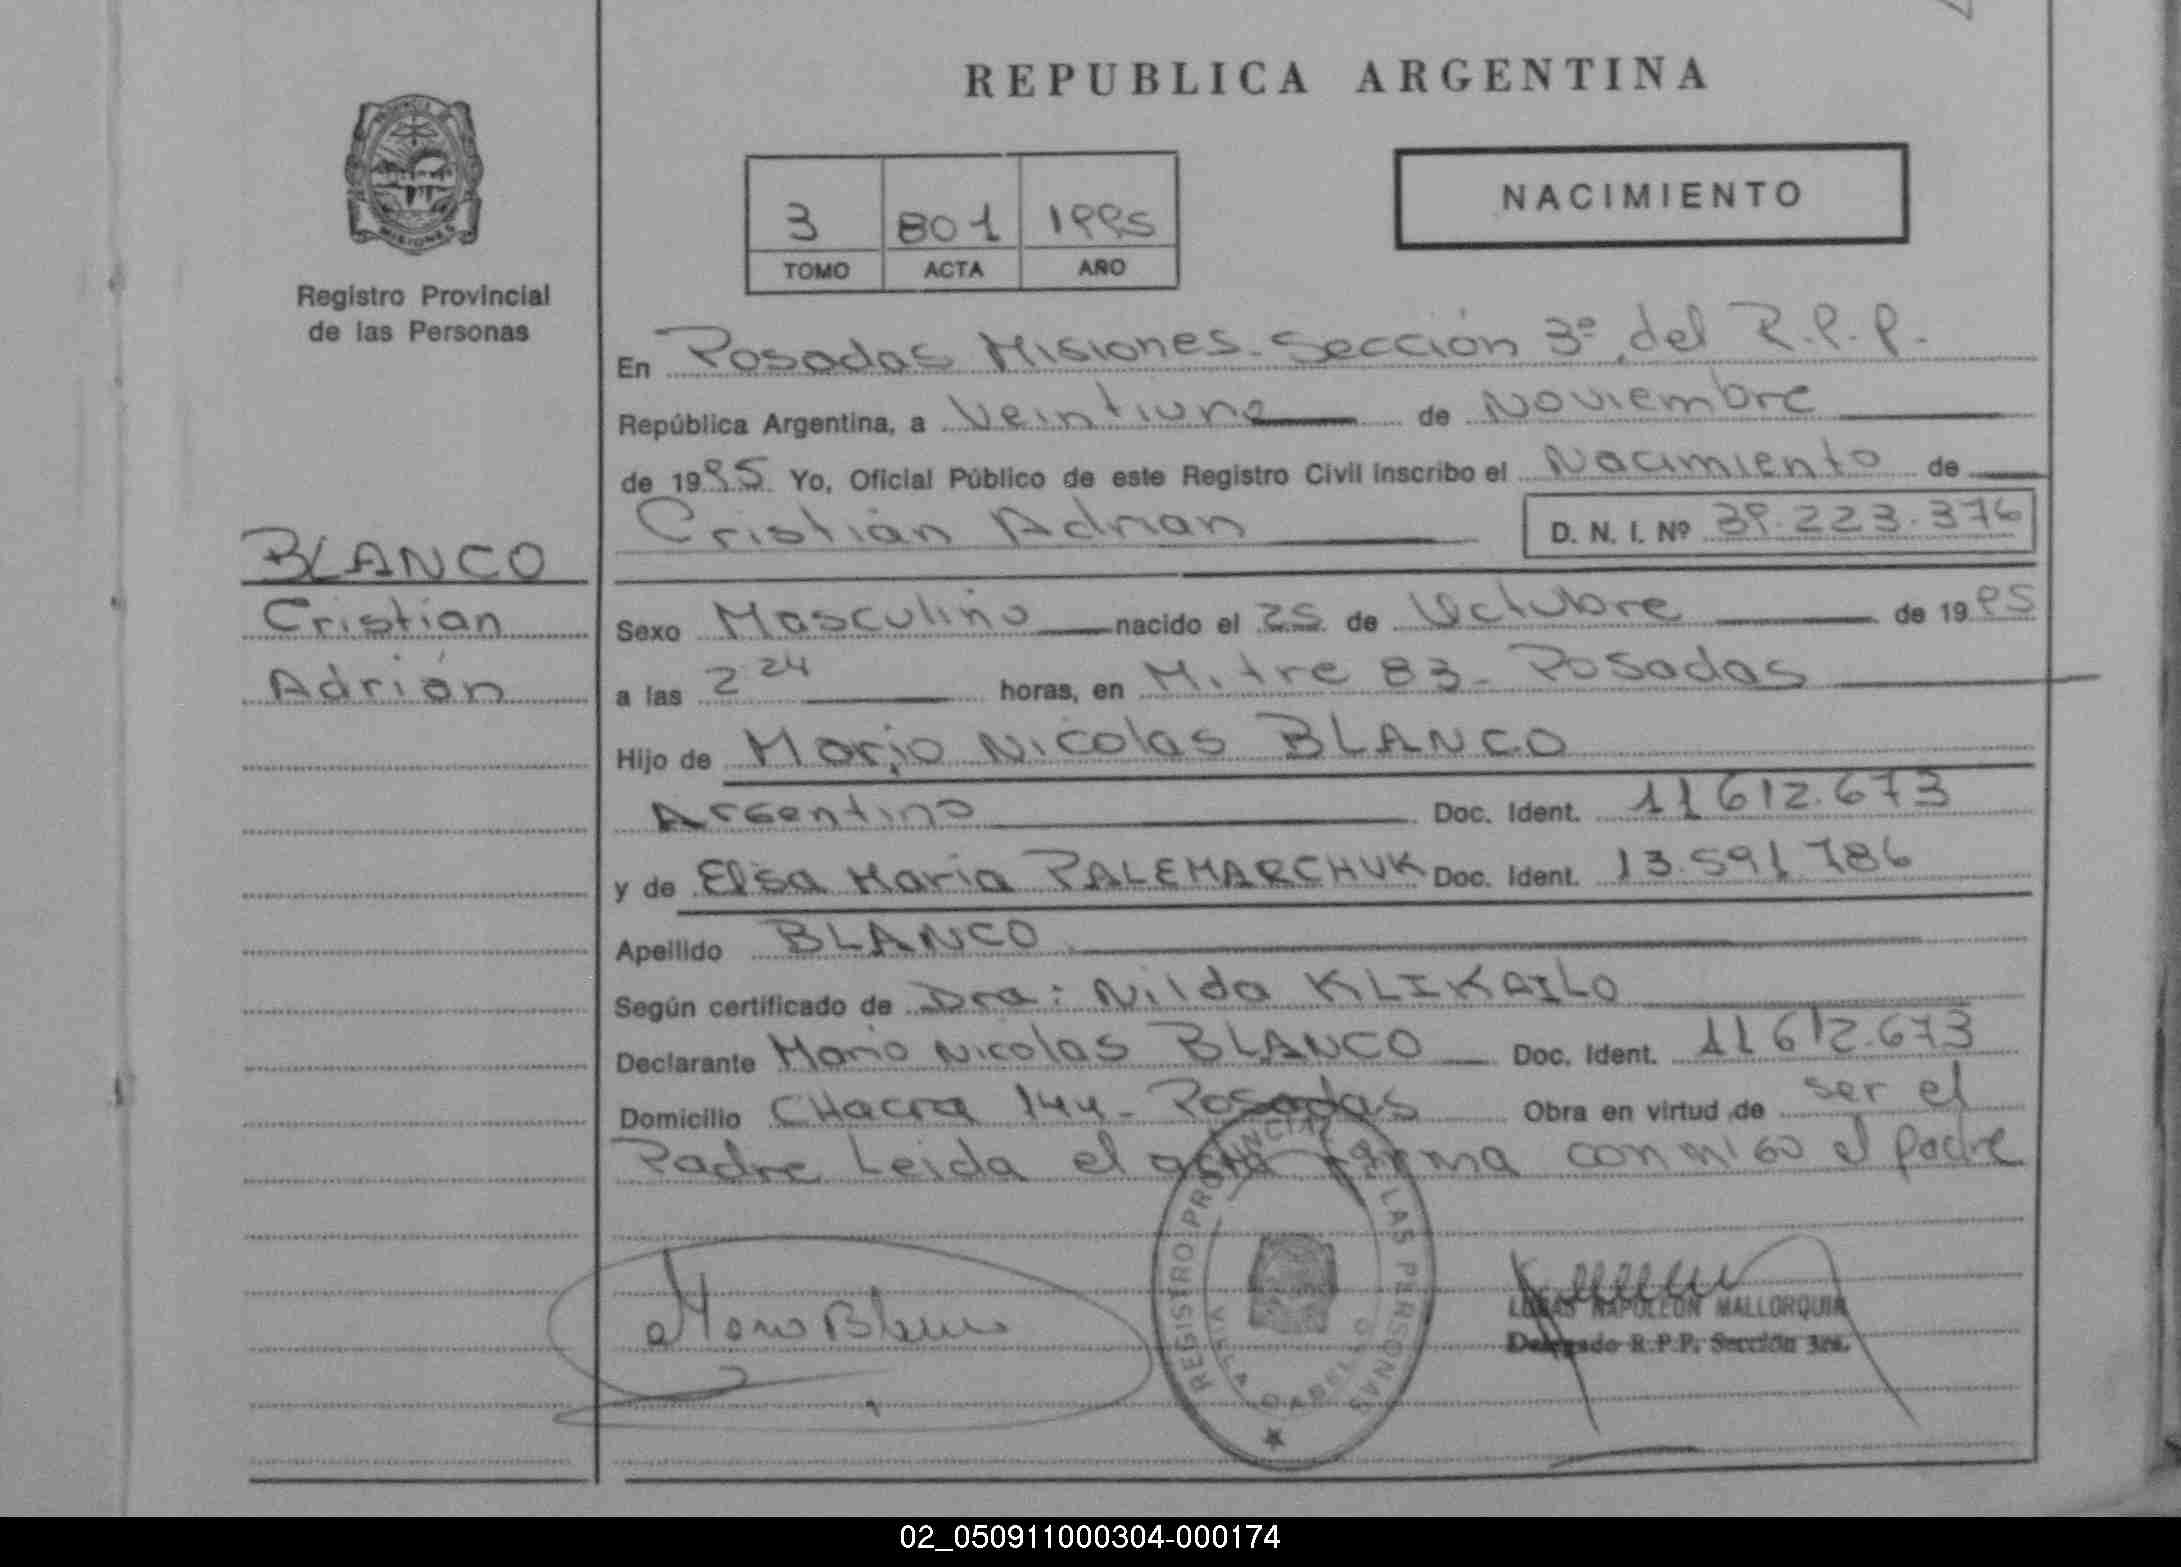 REPUBLICA ARGENTINA
PROVINCIA DE
MISIONES
Registro Provincial
de las Personas
3 801 1995
TOMO ACTA AÑO
NACIMIENTO
En Posadas Misiones. Sección 3º del R.P.P.
República Argentina, a Veintiuno de Noviembre
de 1995 Yo, Oficial Público de este Registro Civil inscribo el Nacimiento de
Cristián Adrian D. N. I. Nº 39.223.376
BLANCO
Cristian
Adrián
Sexo Masculino nacido el 25 de Octubre de 1995
a las 2 24 horas, en Mitre 83 - Posadas
Hijo de Mario Nicolas BLANCO
Argentino Doc. Ident. 11612.673
y de Elsa Maria PALEMARCHUK Doc. Ident. 13.591.786
Apellido BLANCO
Según certificado de Dra: Nilda KLIKAILO
Declarante Mario Nicolas BLANCO Doc. Ident. 11612.673
Domicilio CHacra 144 - Posadas Obra en virtud de ser el
Padre Leida el acta firma conmigo el padre
Mario Blanco
REGISTRO PROVINCIAL LAS PERSONAS
LUCAS NAPOLEON MALLORQUIN
Delegado R.P.P. Sección 3ra.
02_050911000304-000174